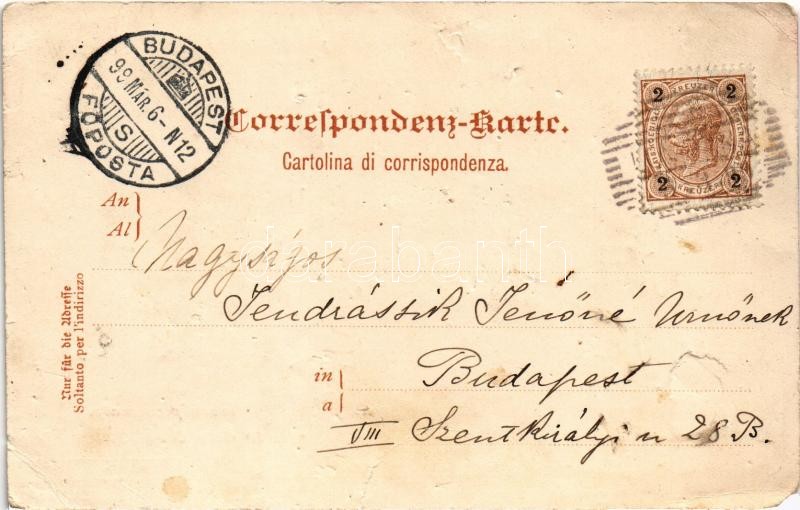 BUDAPEST
98 MÁR. 6 - N12
S
FŐPOSTA
2 KREUZER 2
2 KREUZER 2
Correspondenz-Karte.
Cartolina di corrispondenza.
An
Al
Nagyságos
Jendrássik Jenőné Urnőnek
in
a
Budapest
VIII Szentkirályi u 28 B.
Nur für die Adresse
Soltanto per l'indirizzo
darabanth